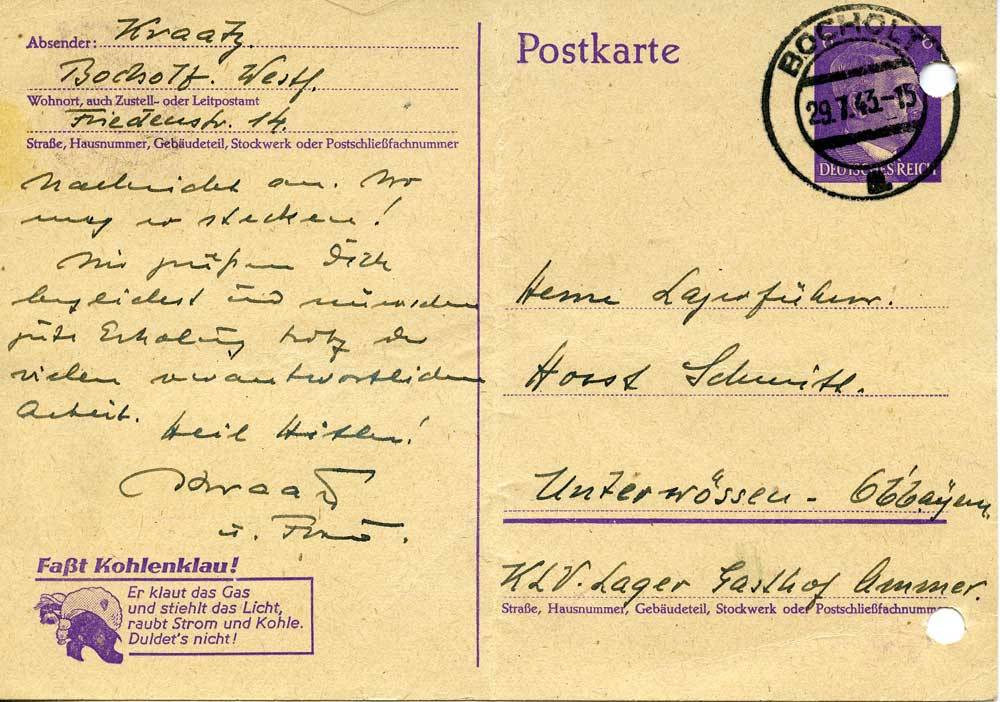 Absender: Kraatz.
Bocholt. Westf.
Wohnort, auch Zustell- oder Leitpostamt
Friedenstr. 14.
Straße, Hausnummer, Gebäudeteil, Stockwerk oder Postschließfachnummer
Nachricht an. Wo
mag er stecken!
Wir grüßen Dich
herzlichst und wünschen
gute Erholung trotz der
vielen verantwortlichen
Arbeit.
Heil Hitler!
Kraatz
u. Frau.
Faßt Kohlenklau!
Er klaut das Gas
und stiehlt das Licht,
raubt Strom und Kohle.
Duldet's nicht!
Postkarte
BOCHOLT
29.7.43.-15
a
6
DEUTSCHES REICH
Herrn Lagerführer.
Horst Schmitt.
Unterwössen - Obbayern.
KLV. Lager Gasthof Ammer.
Straße, Hausnummer, Gebäudeteil, Stockwerk oder Postschließfachnumme